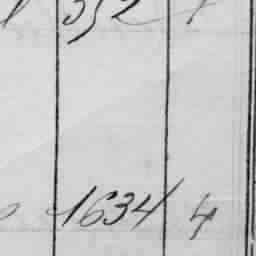 352
1634 4